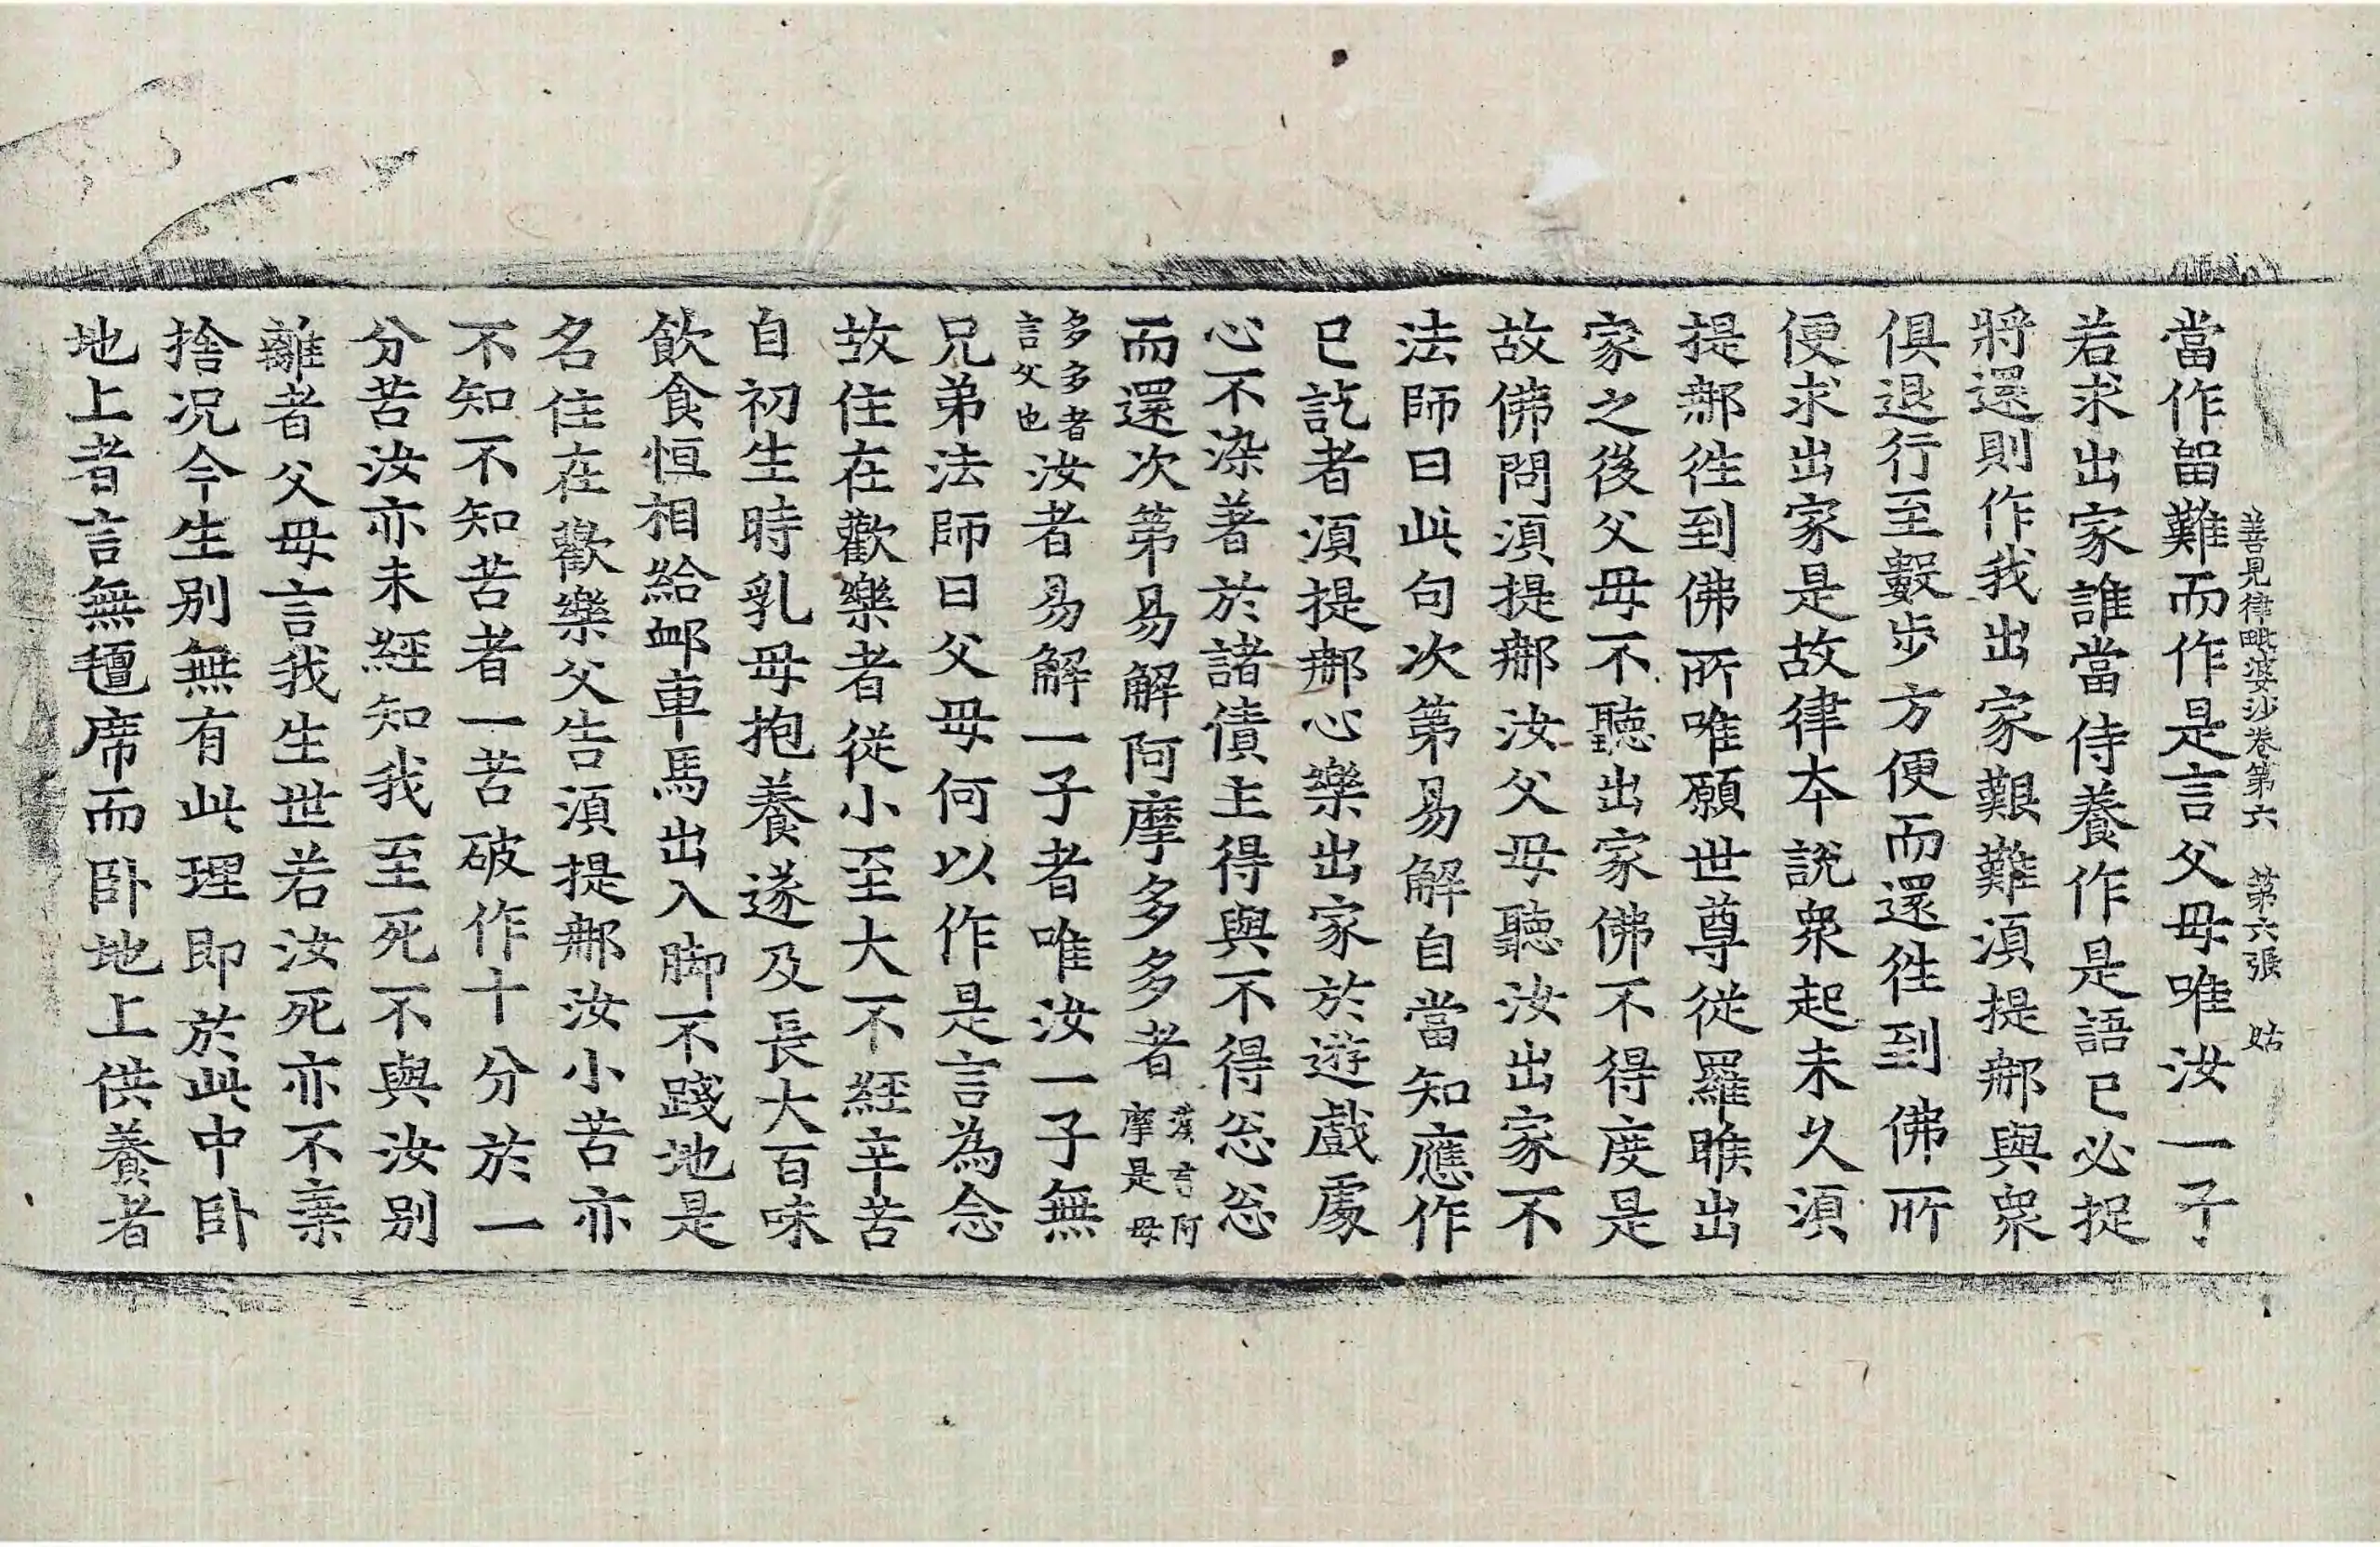 善見律毗婆沙卷第六　第六張　姑
當作留難而作是言父母唯汝一子
若求出家誰當侍養作是語已必捉
將還則作我出家艱難須提那與衆
俱退行至數步方便而還徃到佛所
便求出家是故律本說衆起未久須
提那徃到佛所唯願世尊從羅睺出
家之後父母不聽出家佛不得度是
故佛問須提那汝父母聽汝出家不
法師曰此句次第易解自當知應作
已訖者須提那心樂出家於遊戲處
心不染著於諸債主得與不得忩忩
而還次第易解阿摩多多者漢言阿摩是母
多多者言父也汝者易解一子者唯汝一子無
兄弟法師曰父母何以作是言為念
故住在歡樂者從小至大不經辛苦
自初生時乳母抱養遂及長大百味
飲食恒相給卹車馬出入脚不踐地是
名住在歡樂父告須提那汝小苦亦
不知不知苦者一苦破作十分於一
分苦汝亦未經知我至死不與汝別
離者父母言我生世若汝死亦不棄
捨况今生別無有此理即於此中卧
地上者言無氊席而卧地上供養者